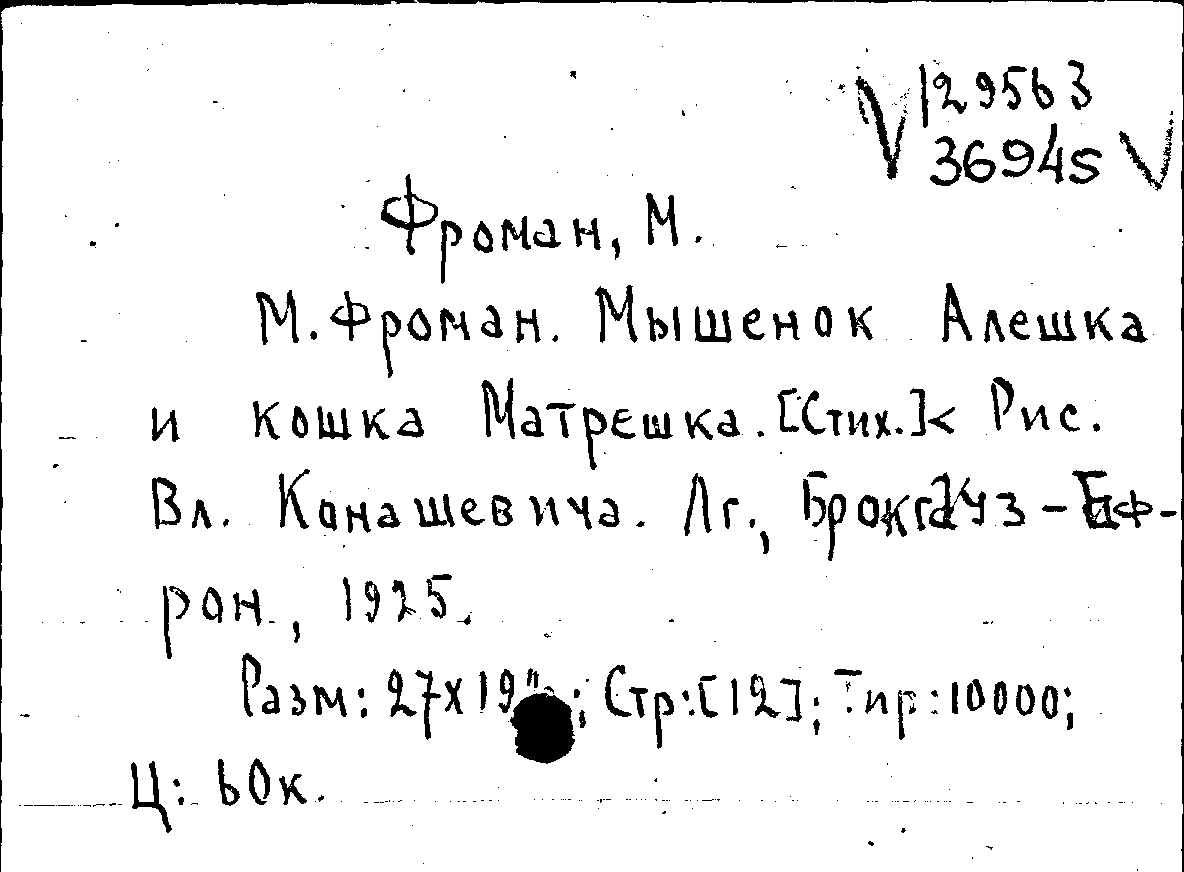 V 129563
36945 V
Фроман, М.
М. Фроман. Мышенок Алешка
и кошка Матрешка. [Стих.]< Рис.
Вл. Конашевича. Лг., Брокгауз-Еф-
рон, 1925.
Разм: 27x19"; Стр:[12]; Тир:10000;
Ц: 60к.